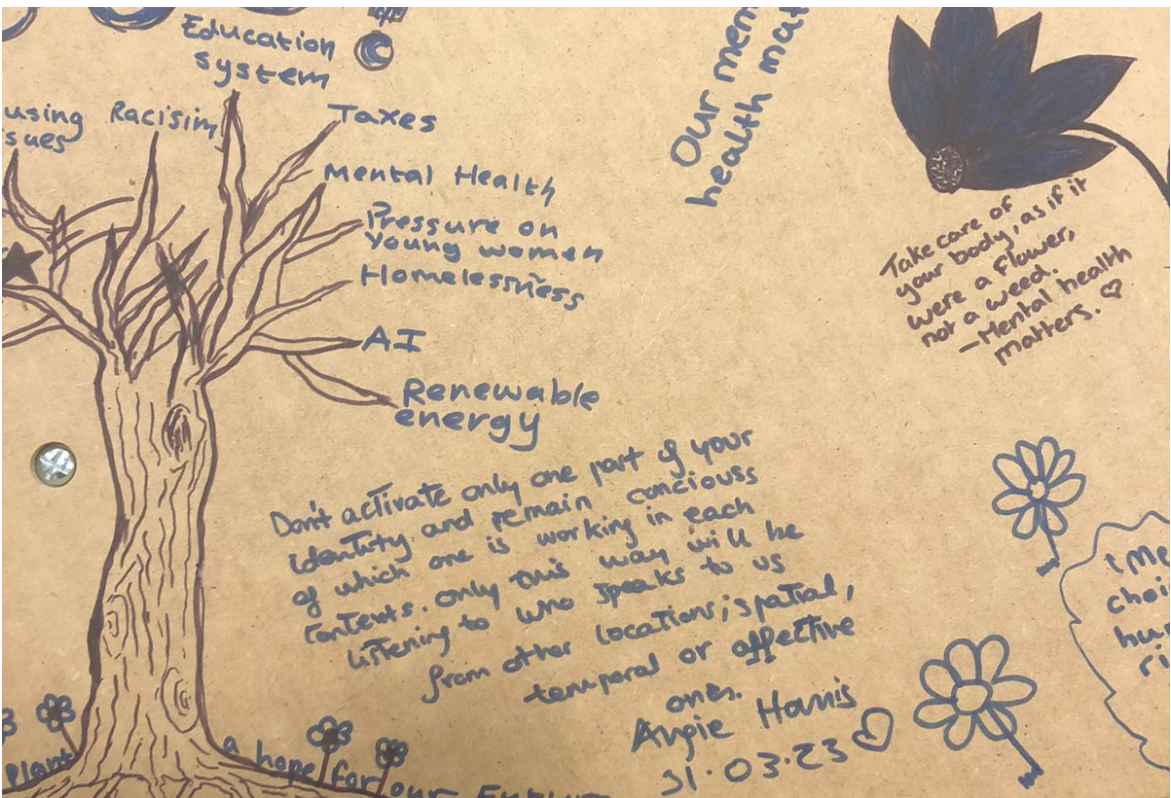 Education
system
using
sues
Racisim
Taxes
Mental Health
Pressure on
young women
Homelessness
AI
Renewable
energy
Our men
health mat
Take care of
your body, as if it
were a flower,
not a weed.
—Mental health
matters. ♡
Don't activate only one part of your
identity and remain conciouss
of which one is working in each
contexts. only this way will be
listening to who speaks to us
from other locations; spatial,
temporal or affective
ones.
Angie Harris
31.03.23 ♡
plant
a hope for our Future